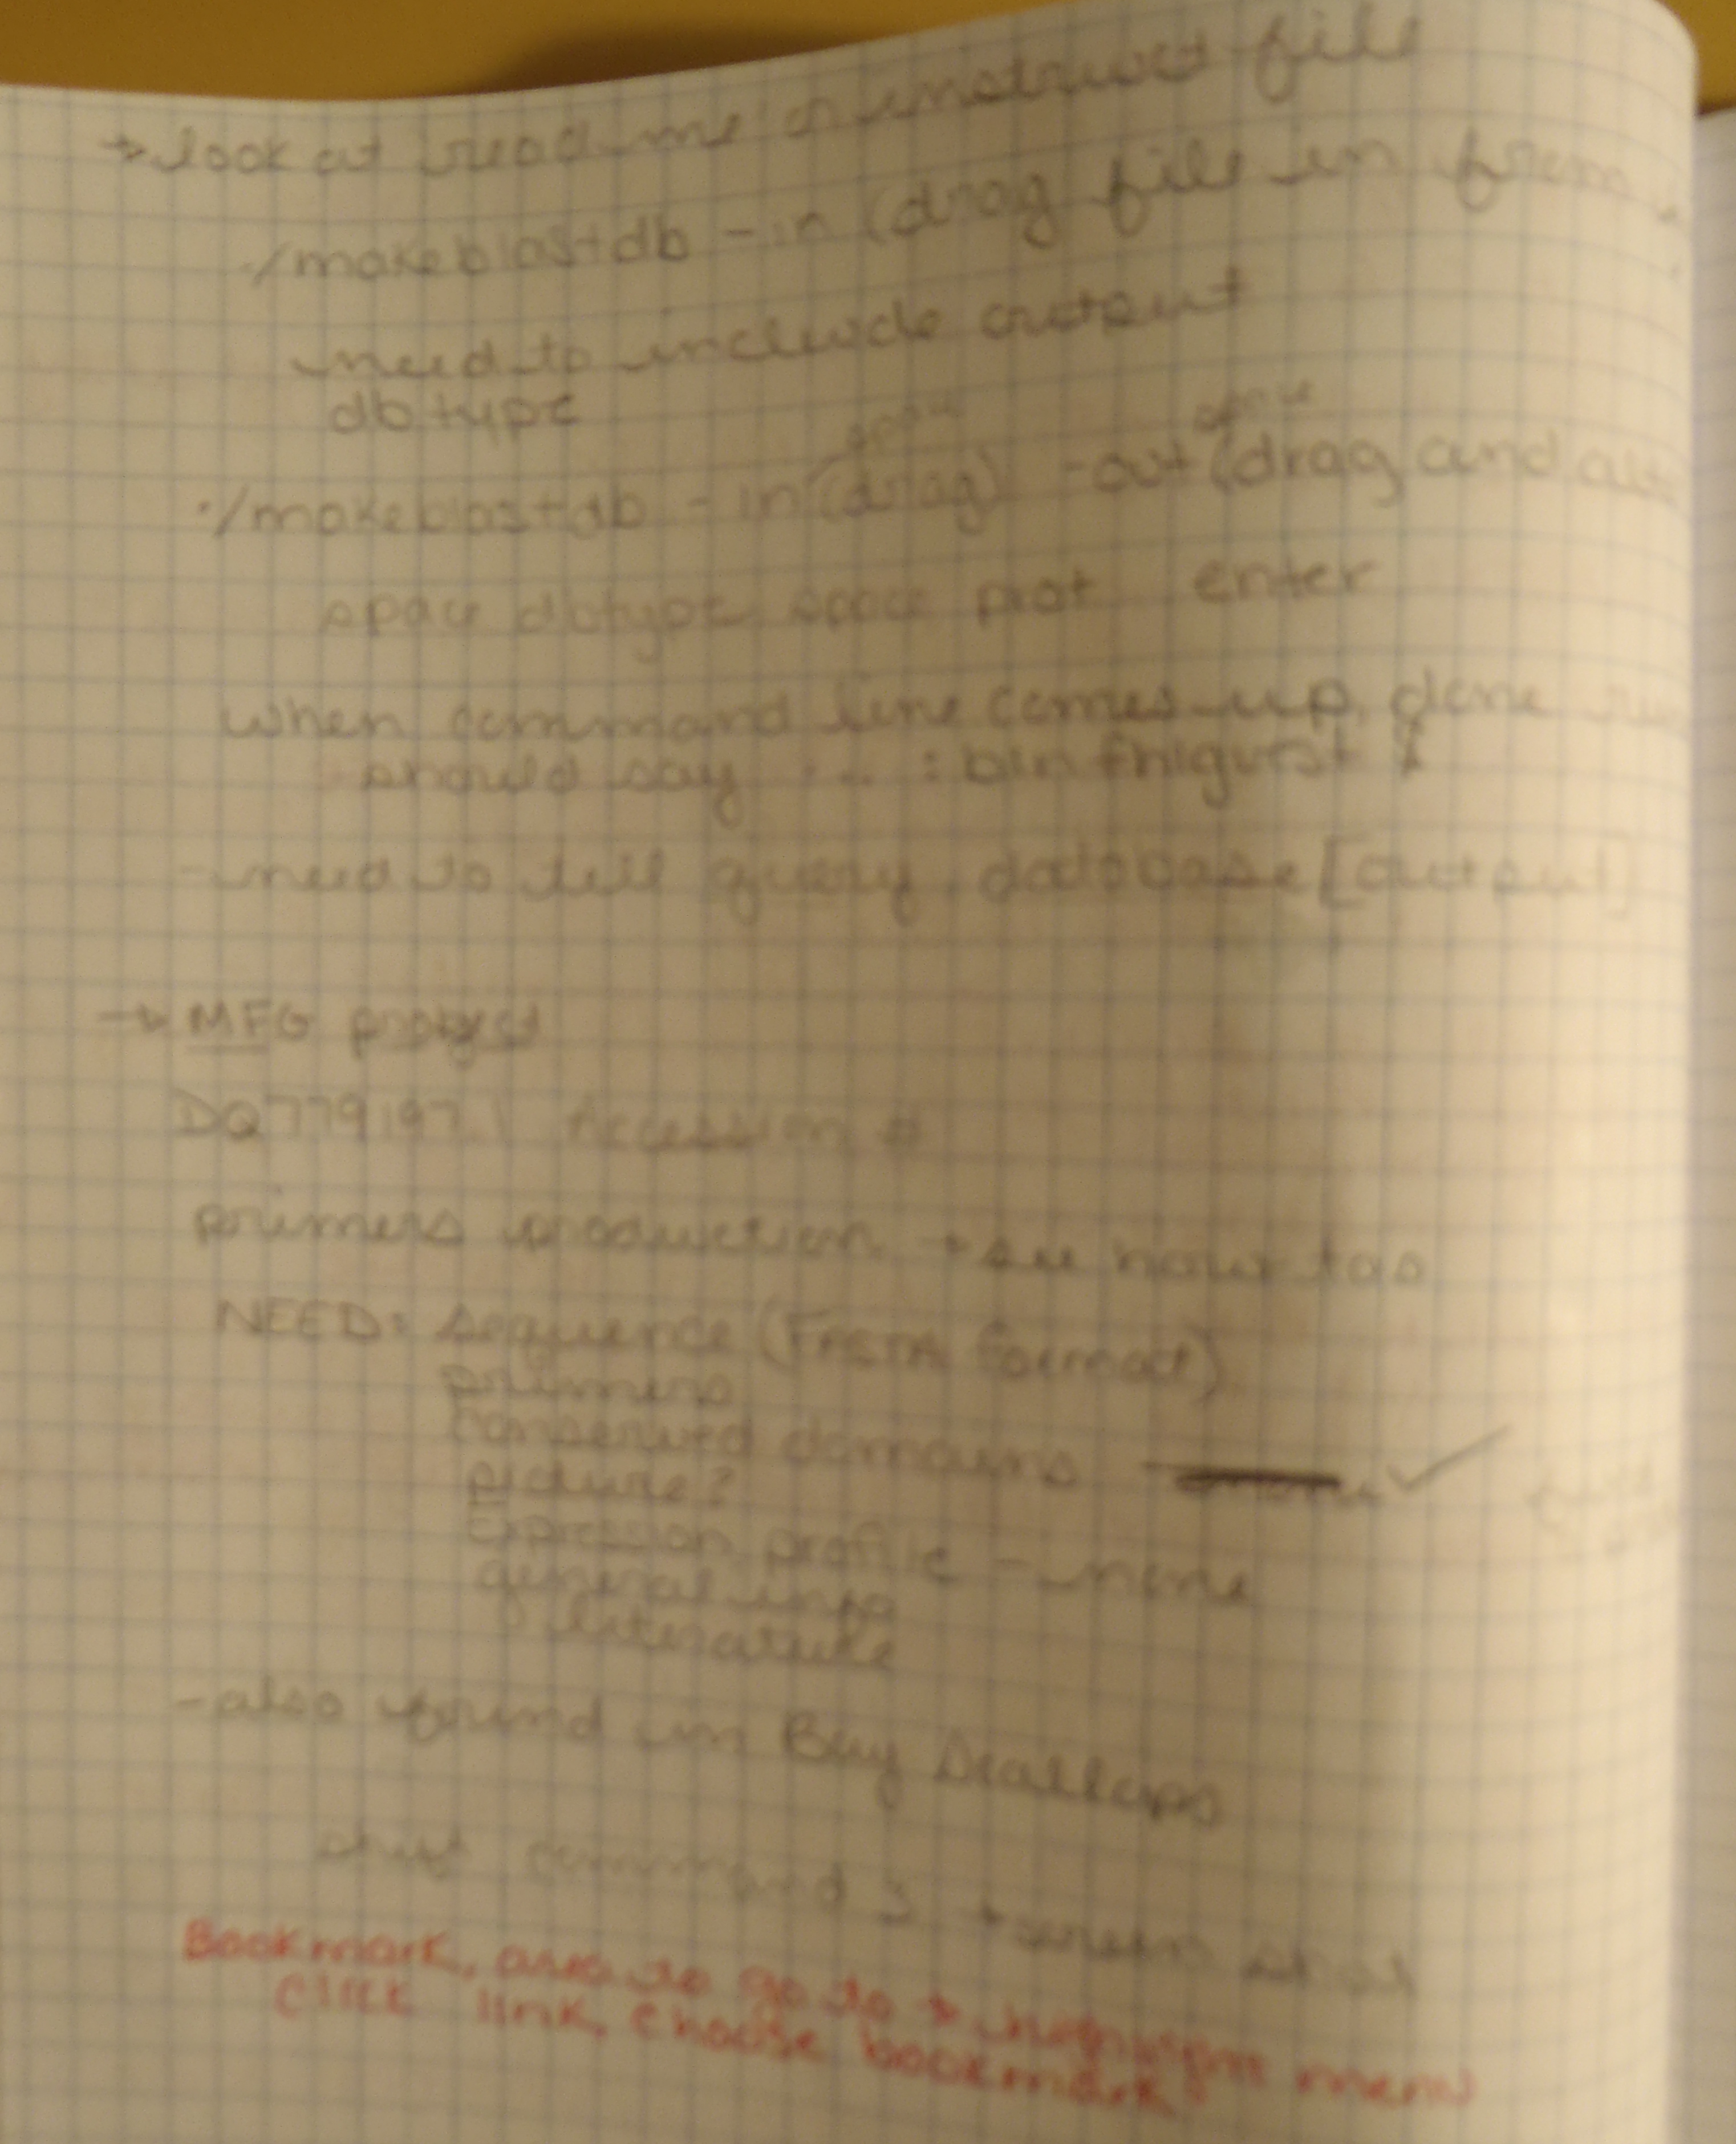 → look at read me or instruct file
./makeblastdb -in (drag file in from
need to include output
dbtype
space space
./makeblastdb -in (drag) -out (drag and
space dbtype space prot enter
when command line comes up, done
should say ... : bin fhlguest $
- need to tell query, database [output]
→ MFG project
DQ779197.1 Accession #
primers production → see how tos
NEED: sequence (FASTA format)
primers
conserved domains - ✓
picture?
Expression profile - none
general info
literature
- also found in Bay Scallops
shift command 3 → screen shot
Bookmark, area to go to → highlight menu
click link, choose bookmark